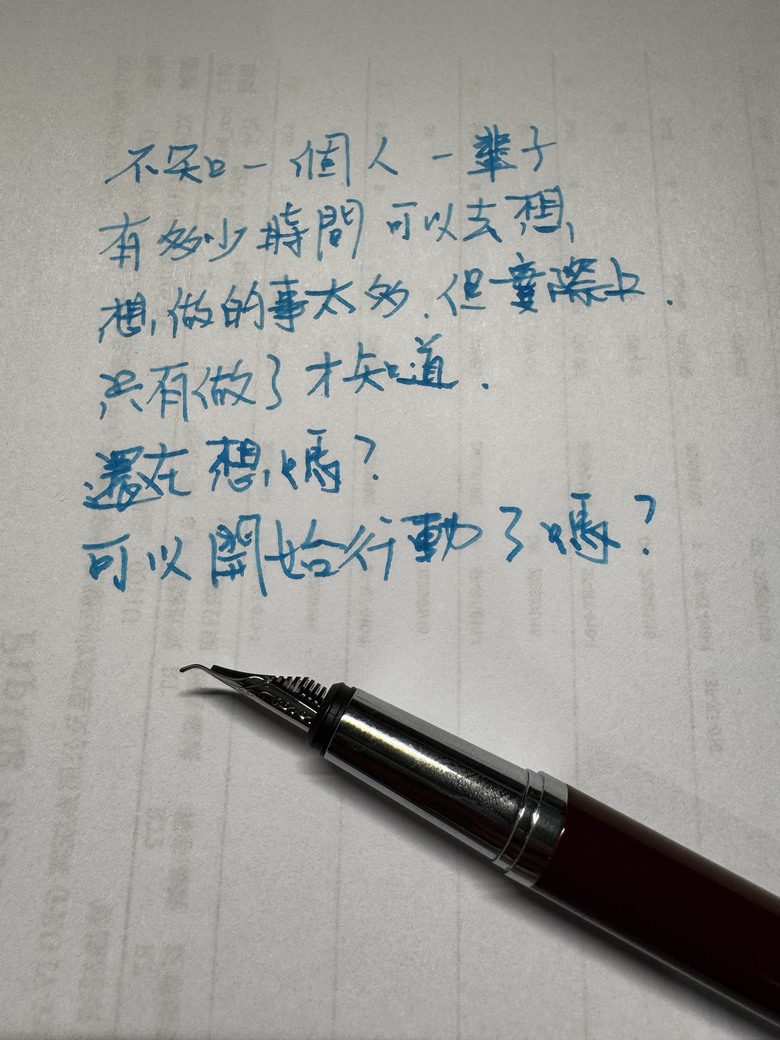 不知一個人一輩子
有多少時間可以去想,
想,做的事太多.但實際上.
只有做了才知道.
還在想嗎?
可以開始行動了嗎?